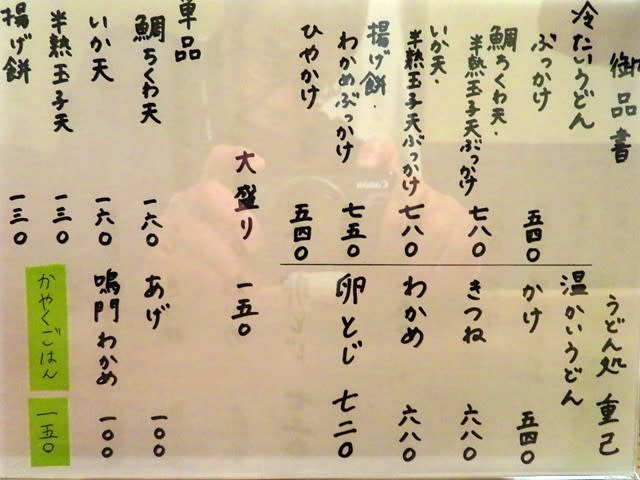 御品書
うどん処 重己
冷たいうどん
ぶっかけ 五四〇
鯛ちくわ天・
半熟玉子天ぶっかけ 七八〇
いか天・
半熟玉子天ぶっかけ 七八〇
揚げ餅・
わかめぶっかけ 七五〇
ひやかけ 五四〇
温かいうどん
かけ 五四〇
きつね 六八〇
わかめ 六八〇
卵とじ 七二〇
大盛り 一五〇
単品
鯛ちくわ天 一六〇
いか天 一六〇
半熟玉子天 一三〇
揚げ餅 一三〇
あげ 一〇〇
鳴門わかめ 一〇〇
かやくごはん 一五〇
Canon